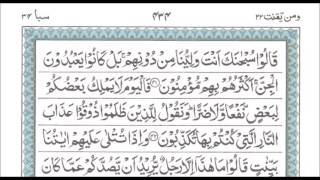 ومن يقنت ٢٢ ٤٣٤ سبا ٣٤
قَالُوْا سُبْحٰنَكَ اَنْتَ وَلِيُّنَا مِنْ دُوْنِهِمْ ۚ بَلْ كَانُوْا يَعْبُدُوْنَ
الْجِنَّ ۚ اَكْثَرُهُمْ بِهِمْ مُّؤْمِنُوْنَ ۝ فَالْيَوْمَ لَا يَمْلِكُ بَعْضُكُمْ
لِبَعْضٍ نَّفْعًا وَّلَا ضَرًّا ؕ وَنَقُوْلُ لِلَّذِيْنَ ظَلَمُوْا ذُوْقُوْا عَذَابَ
النَّارِ الَّتِيْ كُنْتُمْ بِهَا تُكَذِّبُوْنَ ۝ وَاِذَا تُتْلٰى عَلَيْهِمْ اٰيٰتُنَا
بَيِّنٰتٍ قَالُوْا مَا هٰذَاۤ اِلَّا رَجُلٌ يُّرِيْدُ اَنْ يَّصُدَّكُمْ عَمَّا كَانَ